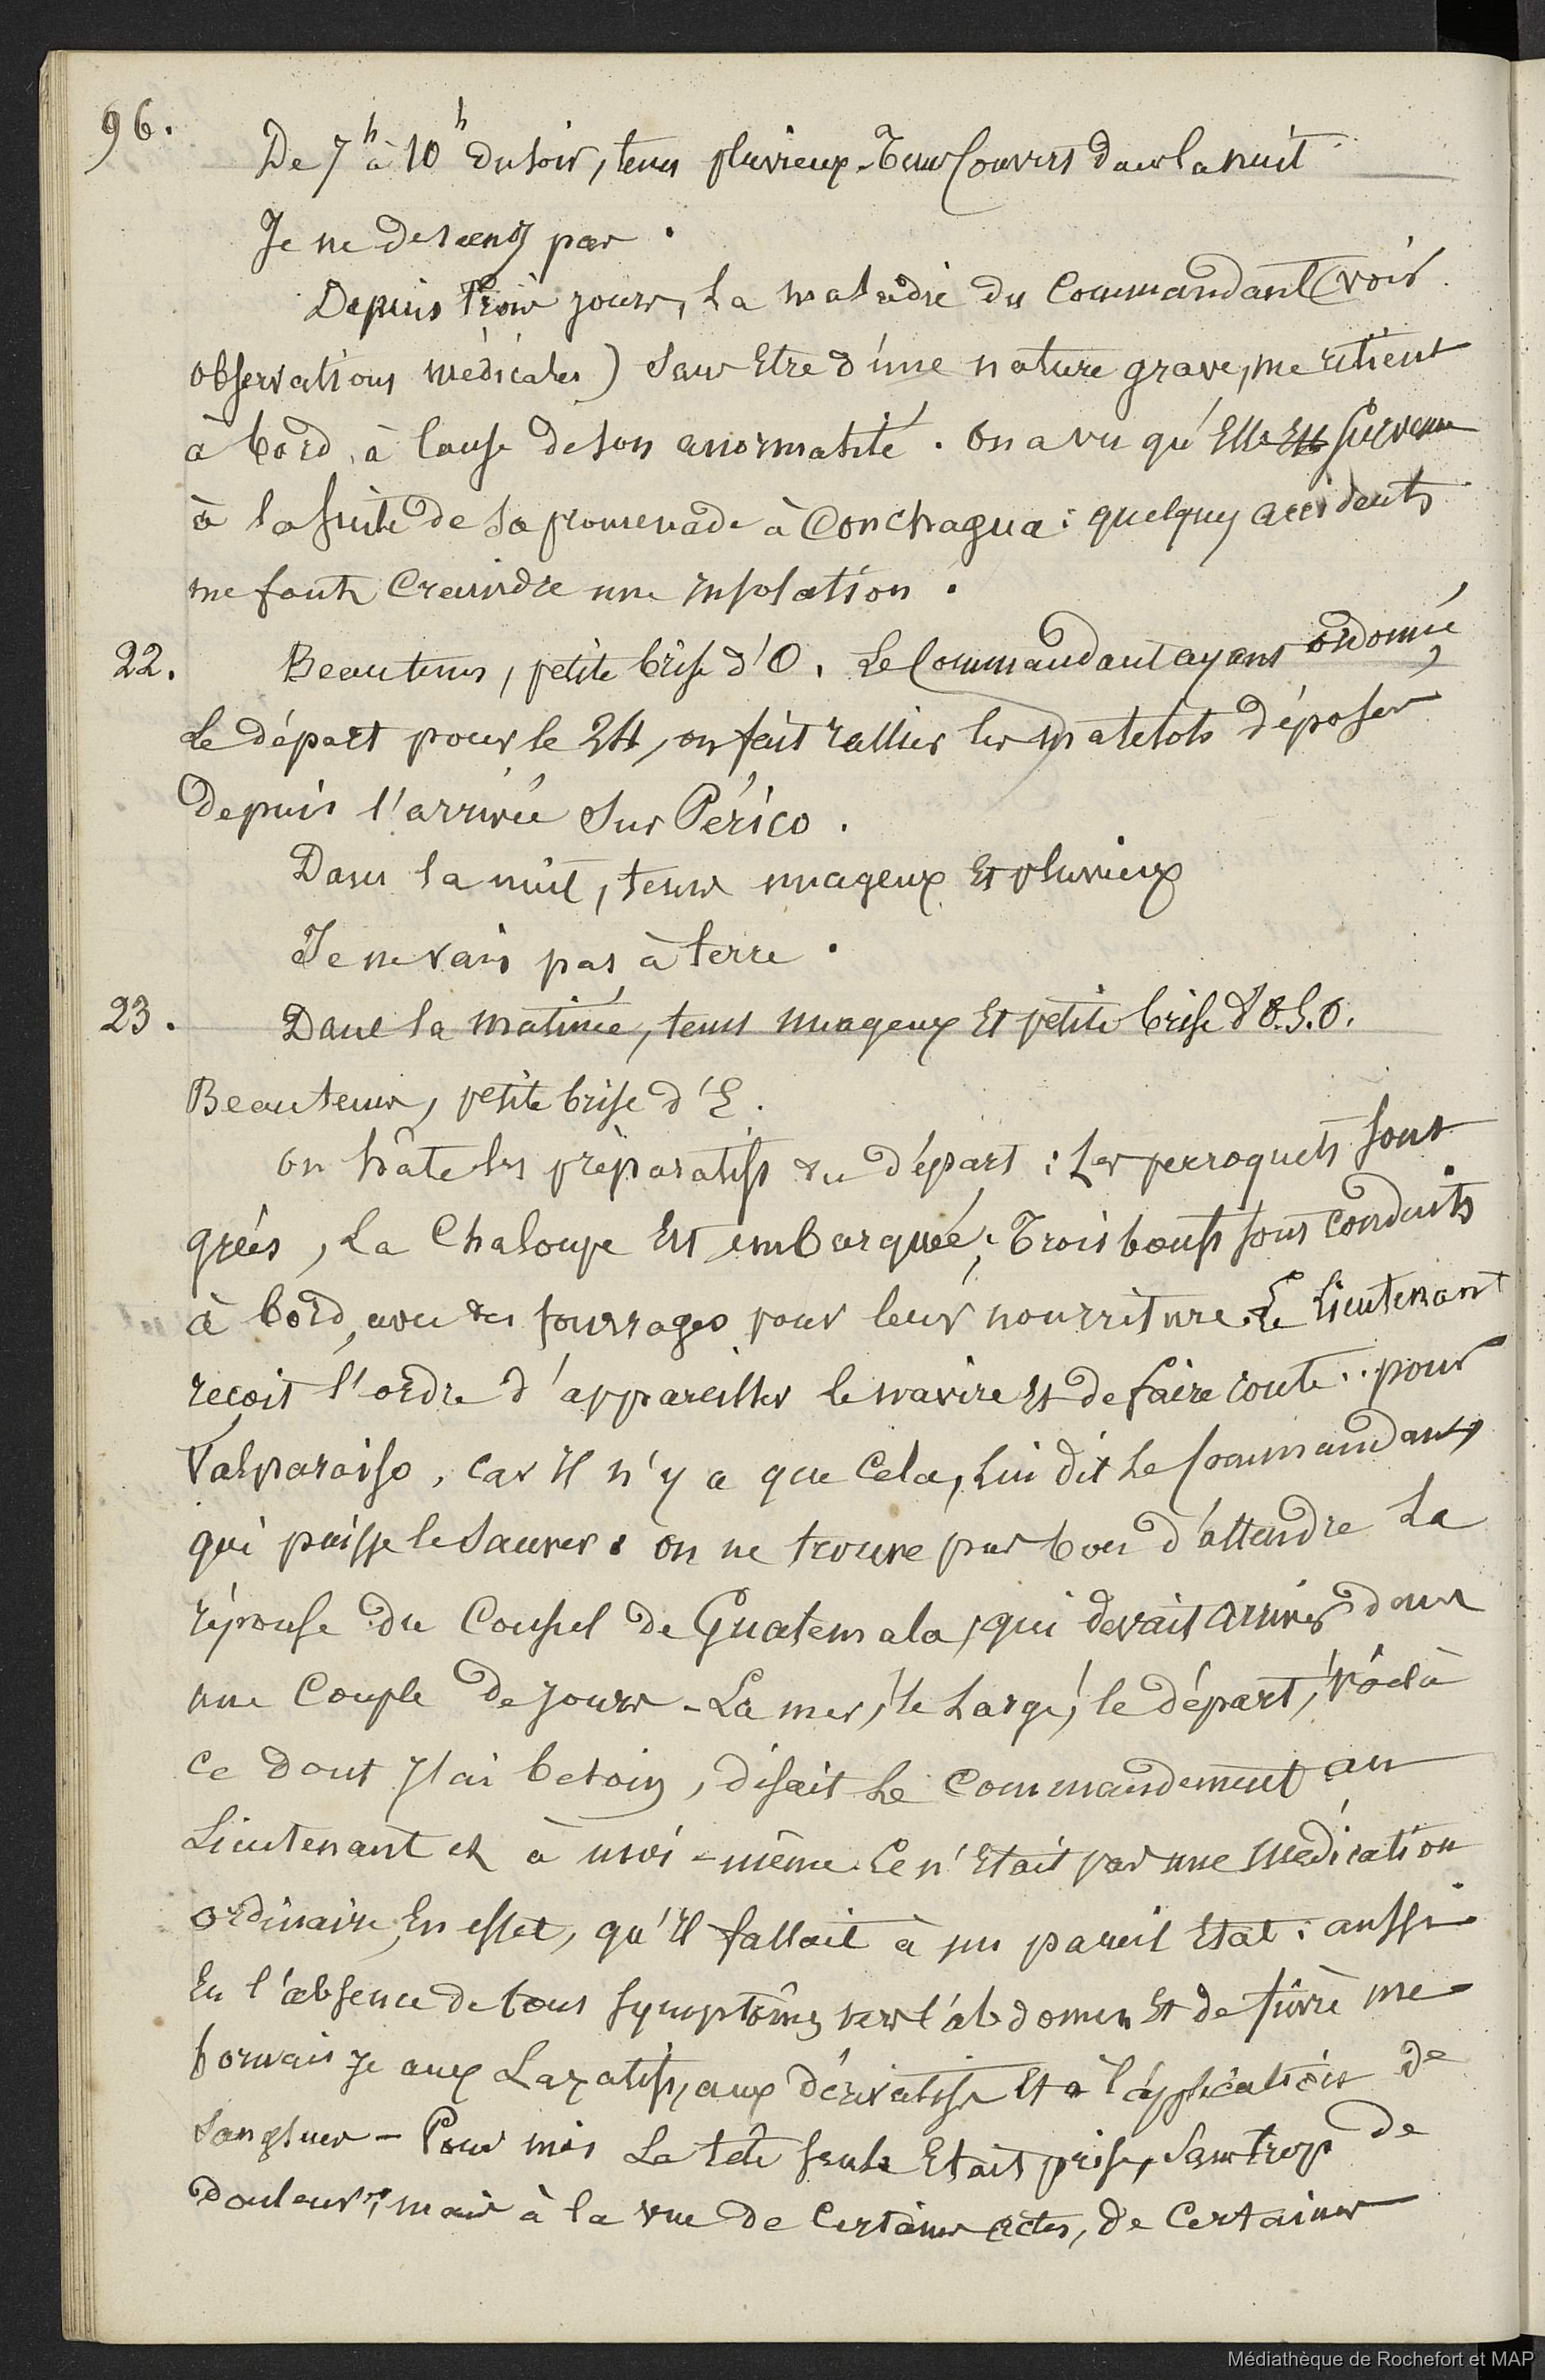 96.
De 7h à 10h du soir, tems pluvieux - Tems Couvert dans la nuit
Je ne descends pas.
Depuis Trois jours, La maladie du Commandant (voir
observations médicales) Sans Etre d'une nature grave, me retient
à bord, à Cause de son anormalité. On a vu qu'Elle Est survenue
à la suite de sa promenade à Conchagua : quelques accidents
me font Craindre une insolation.
22. Beau tems, petite brise d'O. Le Commandant ayant ordonné
Le départ pour le 24, on fait rallier les matelots déposés
depuis l'arrivée Sur Périco.
Dans la nuit, tems nuageux Et pluvieux
Je ne vais pas à terre.
23. Dans la matinée, tems nuageux Et petite brise d'O.S.O.
Beau tems, petite brise d'E.
On hâte les préparatifs du départ : Les perroquets sont
gréés, La Chaloupe Est embarquée; Trois boeufs sont conduits
à bord, avec des fourrages pour leur nourriture. Le Lieutenant
reçoit l'ordre d'appareiller le navire Et de faire route .. pour
Valparaiso, Car Il n'y a que Cela, Lui dit Le Commandant,
qui puisse le Sauver : on ne trouve pas bon d'attendre La
réponse du Consul de Guatemala, qui devait arriver dans
une Couple de jours - La mer, le Large, le départ, voilà
Ce dont j'ai besoin, disait Le Commandement au
Lieutenant et à moi-même. Ce n'Etait pas une médication
ordinaire, En effet, qu'Il fallait à un pareil Etat : aussi
En l'absence de tous symptômes vers l'abdomen Et de fièvre me
bornais je aux Laxatifs, aux dérivatifs Et à l'application de
Sangsues - Pour moi La tête seule Etait prise, Sans trop de
douleurs, mais à la vue de Certains actes, de Certaines
Médiathèque de Rochefort et MAP